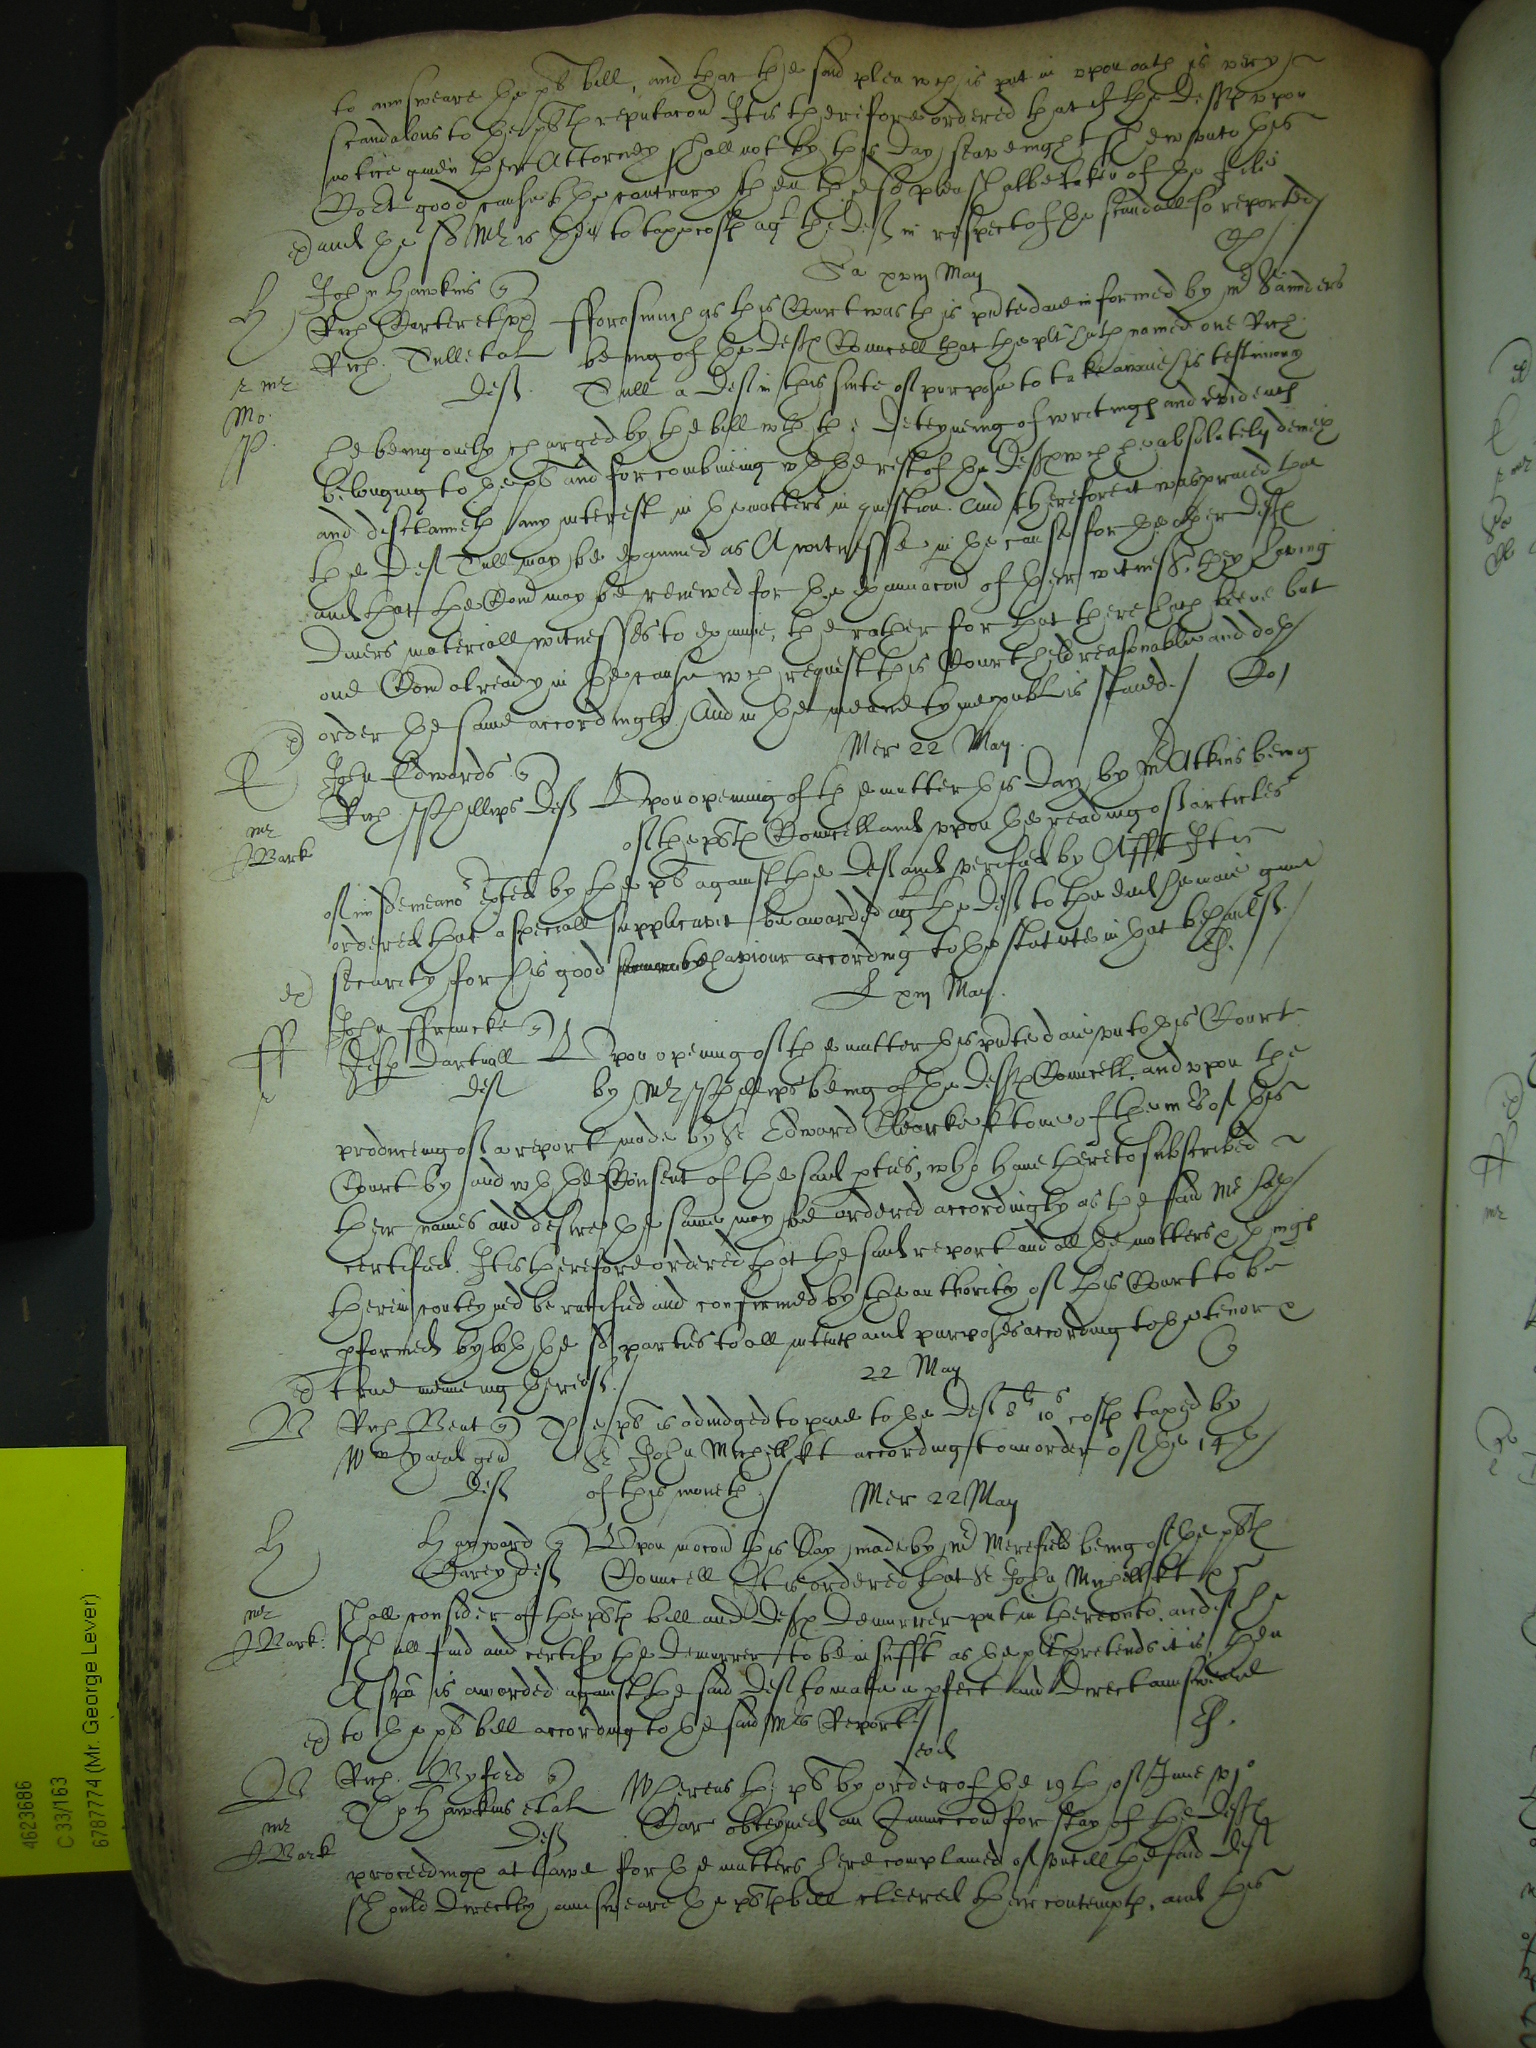 to aunsweare the pts bill, and that the said plea wch is put in upon oath is very
scandalous to the plts reputacon It is therefore ordered that if the Defts upon
notice given their Attorney shall not by this day seavenight shew unto this
Cort good cause to the contrary then the sd plea shalbe taken of the file
and the sd Mr is then to taxe costs agt the Deft in respect of the scandall so reported
Sa xviij May
H John Hawkins
Rich Carteret
Rich. Tull et al
Deft.
fforasmuch as this Court was this pnte daie informed by Mr Saunders
being of the Defts Councell that the plt hath named one Rich
Tull a Deft in this suite of purpose to take awaie his testimony
he being onely charged by the bill wth the deteyneing of writings and evidents
belonging to the pts and for combineing wth the rest of the Defts wch he absolutely denieth
and disclaimeth any interest in the matters in question. And therefore it was praied that
the Deft Tull may be examined as A witnesse in the cause for the other Defts
and that the Comd may be renewed for the examinacon of their witnesses they having
divers materiall witnesses to examine, the rather for that there hath beene but
one Comd already in the cause wch request this Court held reasonable and doth
order the same accordingly And in the meane tyme publ is staied.
Mer 22 May.
E John Edwards
Rich Phillips Deft
mr
JBark
Upon opening of the matter this day by Mr Atkins being
of the plts Councell and upon the reading of articles
of misdemeanor exhted by the plt against the Deft and verified by Afft It is
ordered that a speciall supplicavit be awarded agt the Deft to the end he maie give
security for his good behaviour according to the statute in that behaulf
xiij May.
ff John ffrancke
Dartnall
Deft
Upon opening of the matter this pnte daie unto this Court
by Mr Phillips being of the Defts Councell, and upon the
produceing of a report made by Sr Edward Clearke kt one of the mrs of this
Court by and wth the Consent of the said pties, who have hereto subscribed
their names and desire the same may be ordered accordingly as the said Mr hath
certified. It is therefore ordered that the said report and all the matters & things
therein conteyned be ratified and confirmed by the authority of this Court to be
pformed by both the sd parties to all intents and purposes according to the tenor &
true meaning thereof.
22 May
B Rich Bent
Wm gen
Deft
The plt is adiudged to paie to the Deft costs taxed by
Sr John Michell kt according to an order of the 14th
of this moneth
Mer 22 May
H Hayward
Carey Deft
mr
JBark.
Upon mocon this day made by Mr Merefield being of the plts
Councell It is ordered that Sr John Michell kt
shall consider of the plts bill and Defts Demurrer put in thereunto, and if he
shall find and certify the Demurrer to be insufft as the plt pretends it is, then
A spa is awarded against the said Deft to make a pfect and direct aunsweare
to the plts bill according to the said Mrs Report
eod
B Rich. Byford
Hawkins et al
Deft
mr
JBark
Whereas the plt by order of the 19th of June
Car obteyned an Iniunccon for stay of the Defts
proceedings at lawe for the matters here complained of untill the said Deft
should directly aunsweare the plts bill cleered their contempts, and this
4623686
C 33/163
6787774 (Mr. George Lever)